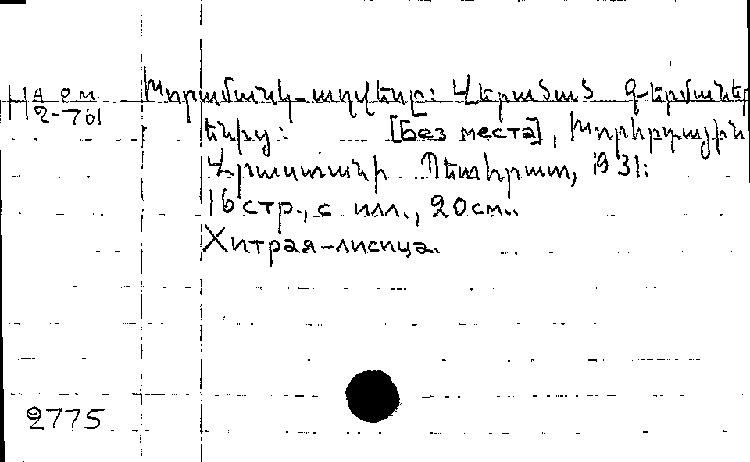 Н А р м
2-761
Խորամանկ-աղվեսը: Վերածած Գերմաներ
ենից: [Без места], Խորհրդային
Վրաստանի Պետհրատ, 1931:
16 стр., с илл., 20см.
Хитрая-лисица.
2775